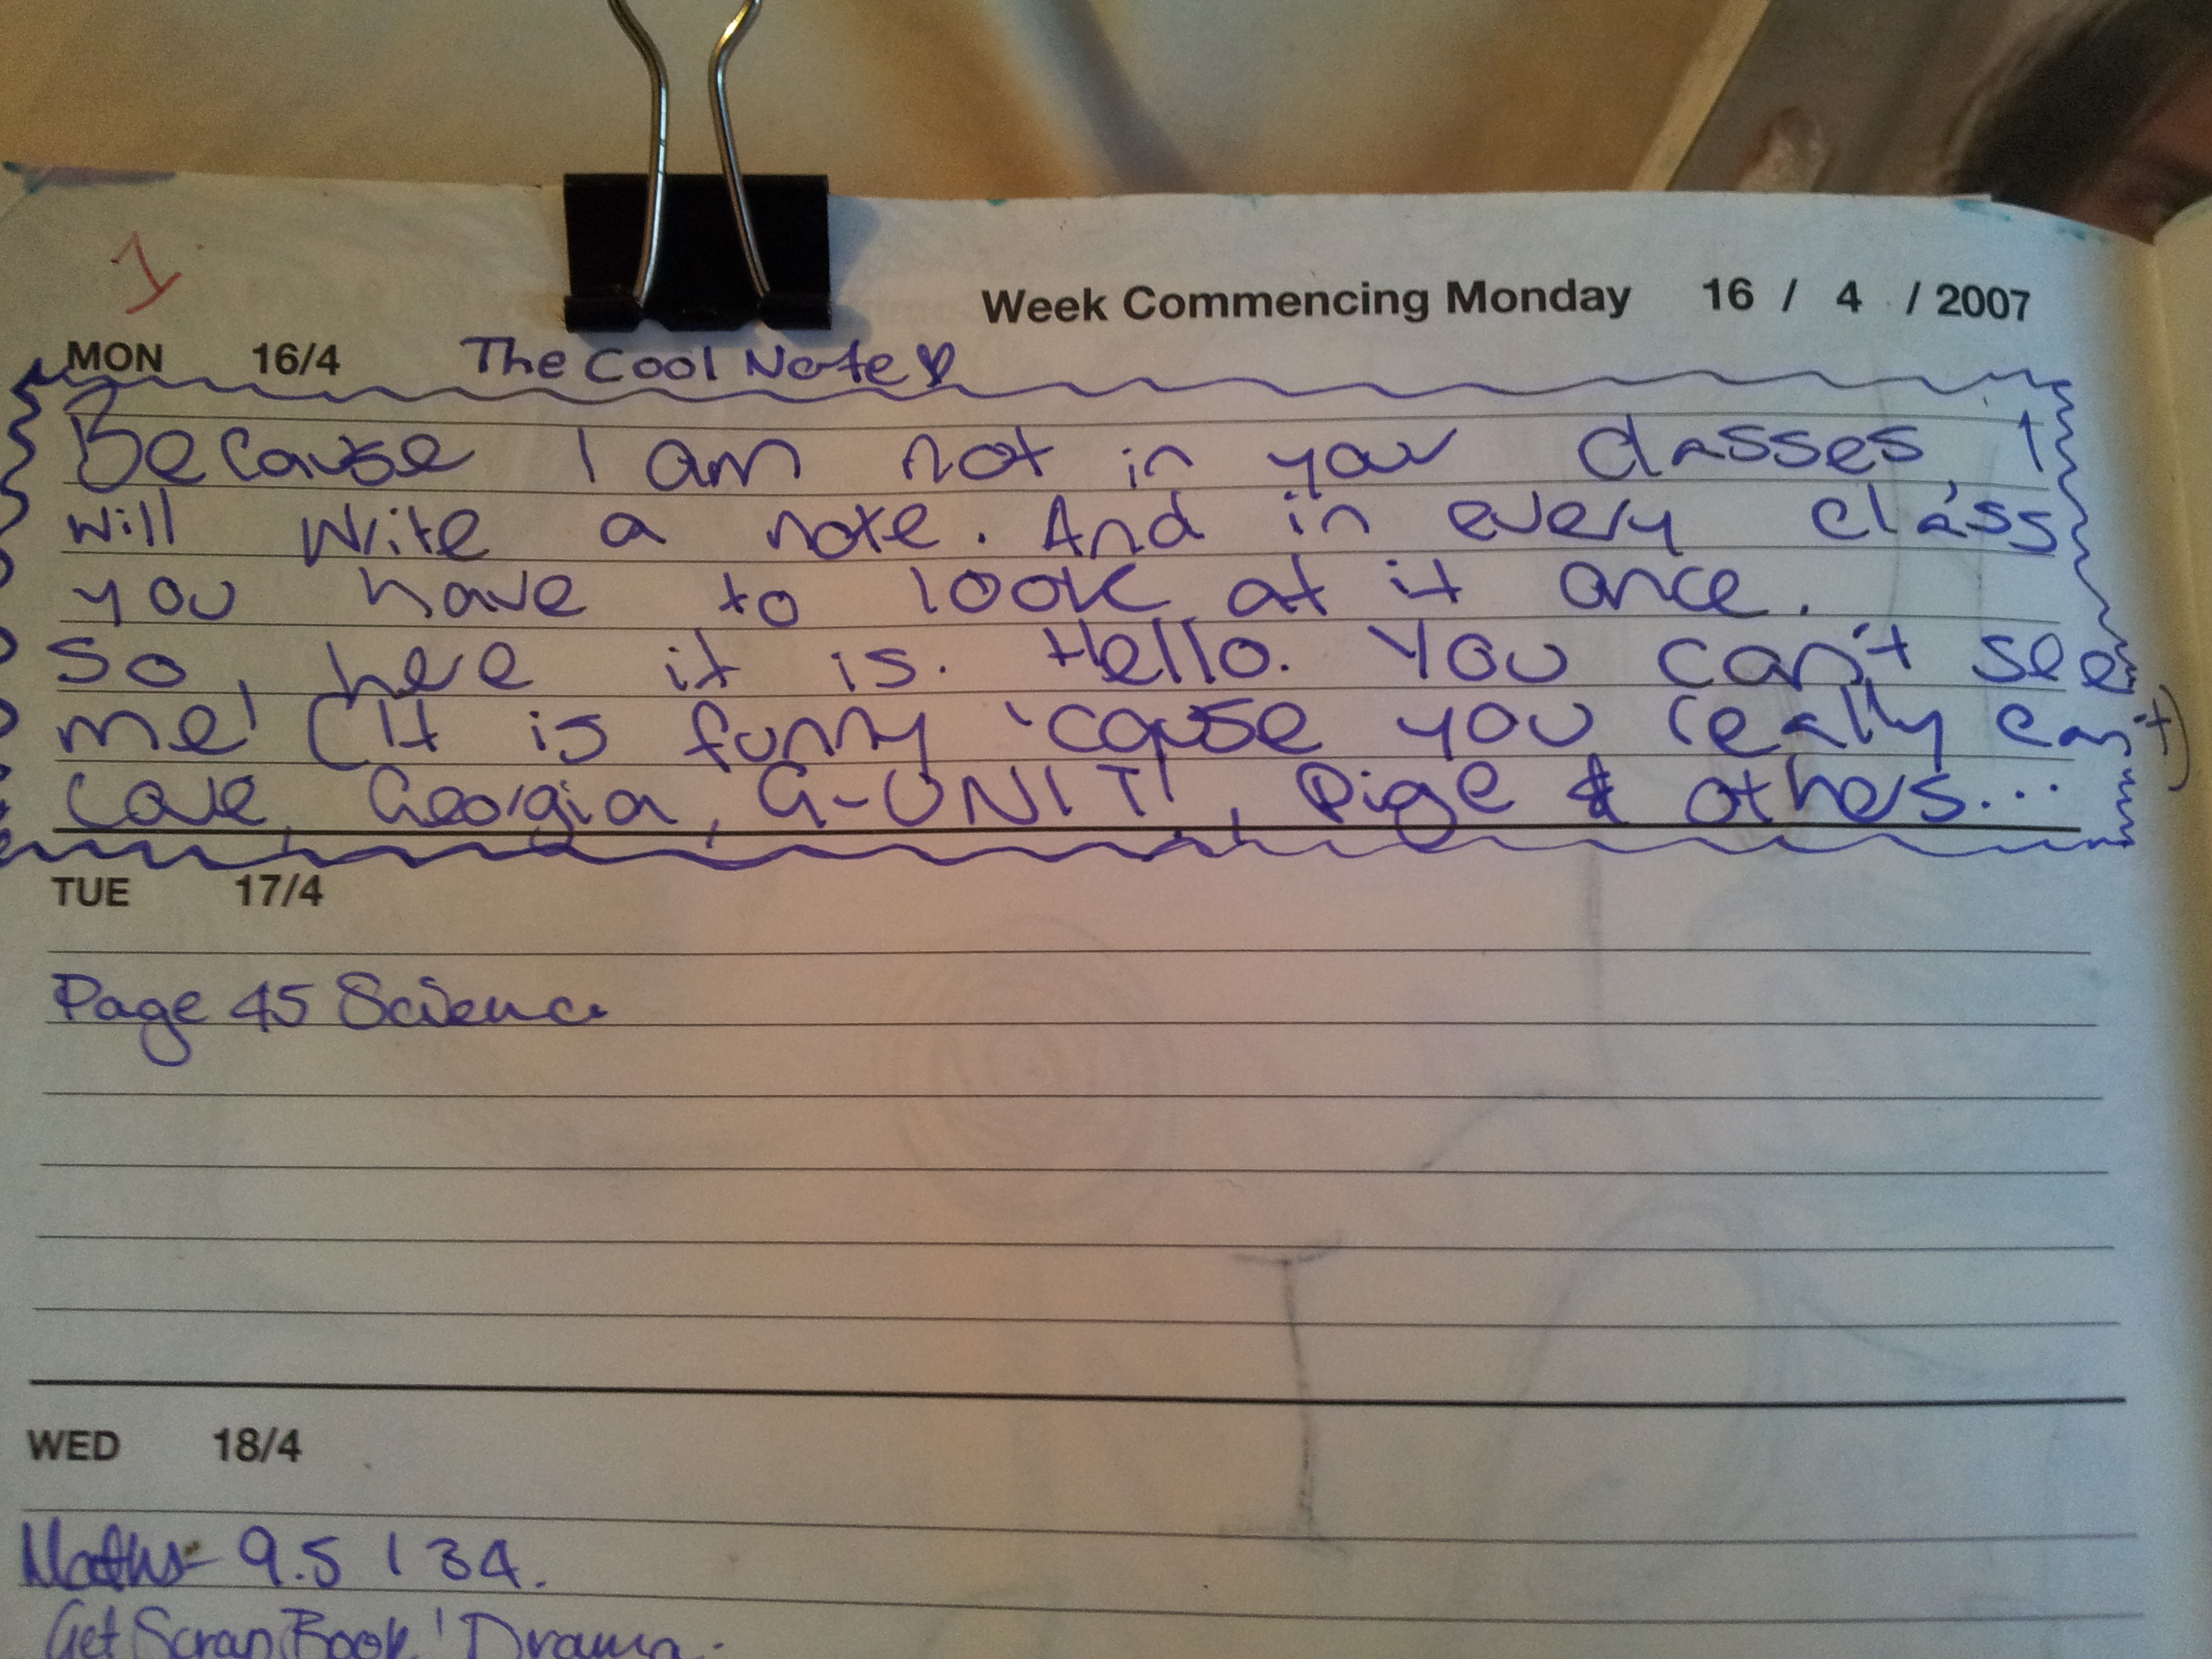 1
Week Commencing Monday 16 / 4 / 2007
MON 16/4 The Cool Note
Because I am not in your classes, I
will write a note. And in every class
you have to look at it once.
So, here it is. Hello. You can't see
me! (It is funny 'cause you really can't)
Love, Georgia, G-UNIT!, Pige & others...
TUE 17/4
Page 45 Science
WED 18/4
Maths- 9.5 134.
Get Scrap Book! Drama.